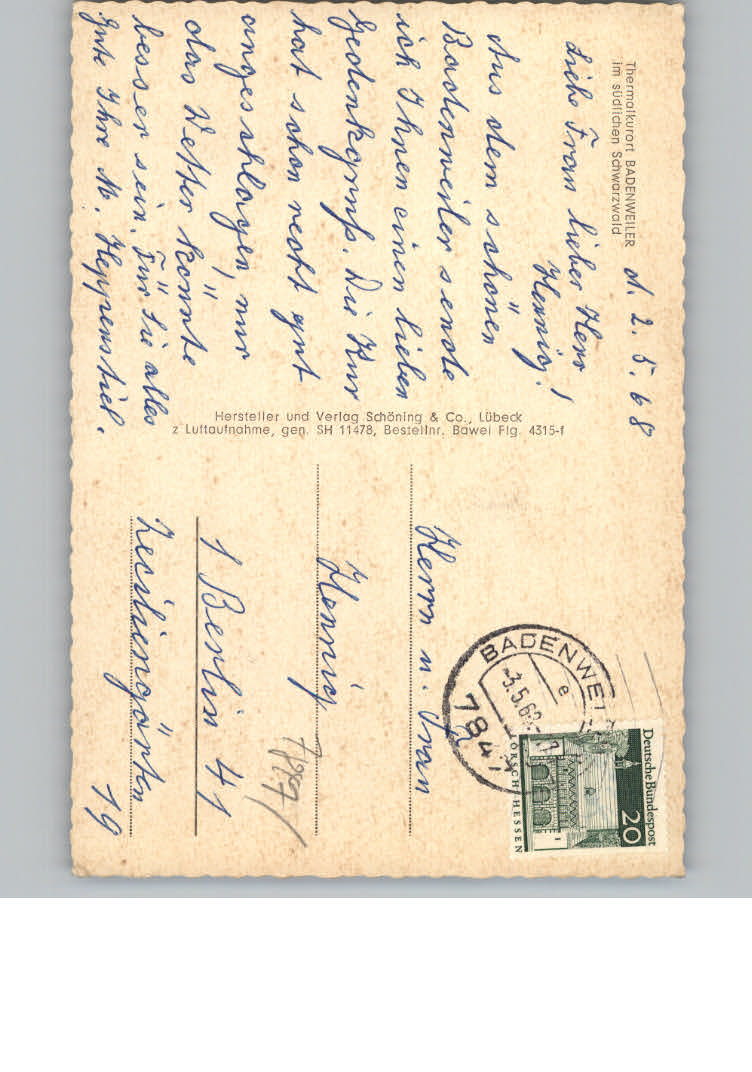 Thermalkurort BADENWEILER
im südlichen Schwarzwald
d. 2. 5. 68
Liebe Frau lieber Herr
Hennig!
Aus dem schönen
Badenweiler sende
ich Ihnen einen lieben
Gedenkgruß. Die Kur
hat schon recht gut
angeschlagen, nur
das Wetter könnte
besser sein. Für Sie alles
Gute Ihre M. Heppenstiel.
Hersteller und Verlag Schöning & Co., Lübeck
z Luftaufnahme, gen. SH 11478, Bestellnr. Bawei Flg. 4315-f
Deutsche Bundespost
20
LORSCH/HESSEN
BADENWEI
e
-3.5.68
7847
Herrn u. Frau
Hennig
1 Berlin 41
Zeciliengärten 19